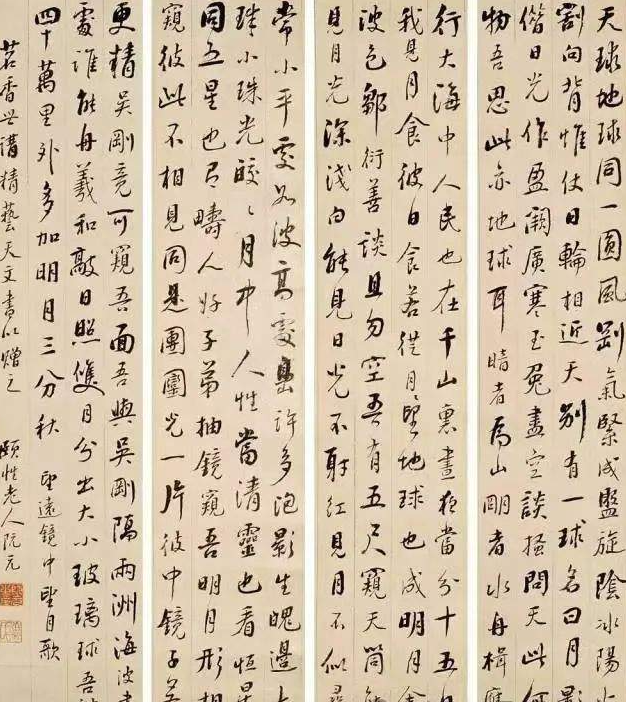 天球地球同一圓風剛氣緊成盤旋陰冰陽
割向背惟仗日輪相近天別有一球名曰月影
偕日光作盈闕廣寒玉兔盡空談搔問天此何
物吾思此亦地球耳暗者為山明者水舟楫應
行大海中人民也在千山裏晝夜當分十五日
我見月食彼日食若從月望地球也成明月金
波色鄒衍善談且勿空吾有五尺窺天筒能
見月光深淺白能見日光不射紅見月不似尋
常小平處如波高處島許多泡影生魄邊大
珠小珠光皎〻月中人性當清靈也看恆星
同五星也有疇人好子弟抽鏡窺吾明月形相
窺彼此不相見同是團圞光一片彼中鏡子若
更精吳剛竟可窺吾面吾與吳剛隔兩洲海波
處誰能舟羲和敲日照雙月分出大小玻璃球吾
四十萬里外多加明月三分秋 望遠鏡中望月歌
茗香世講精藝天文書以贈之 頤性老人阮元